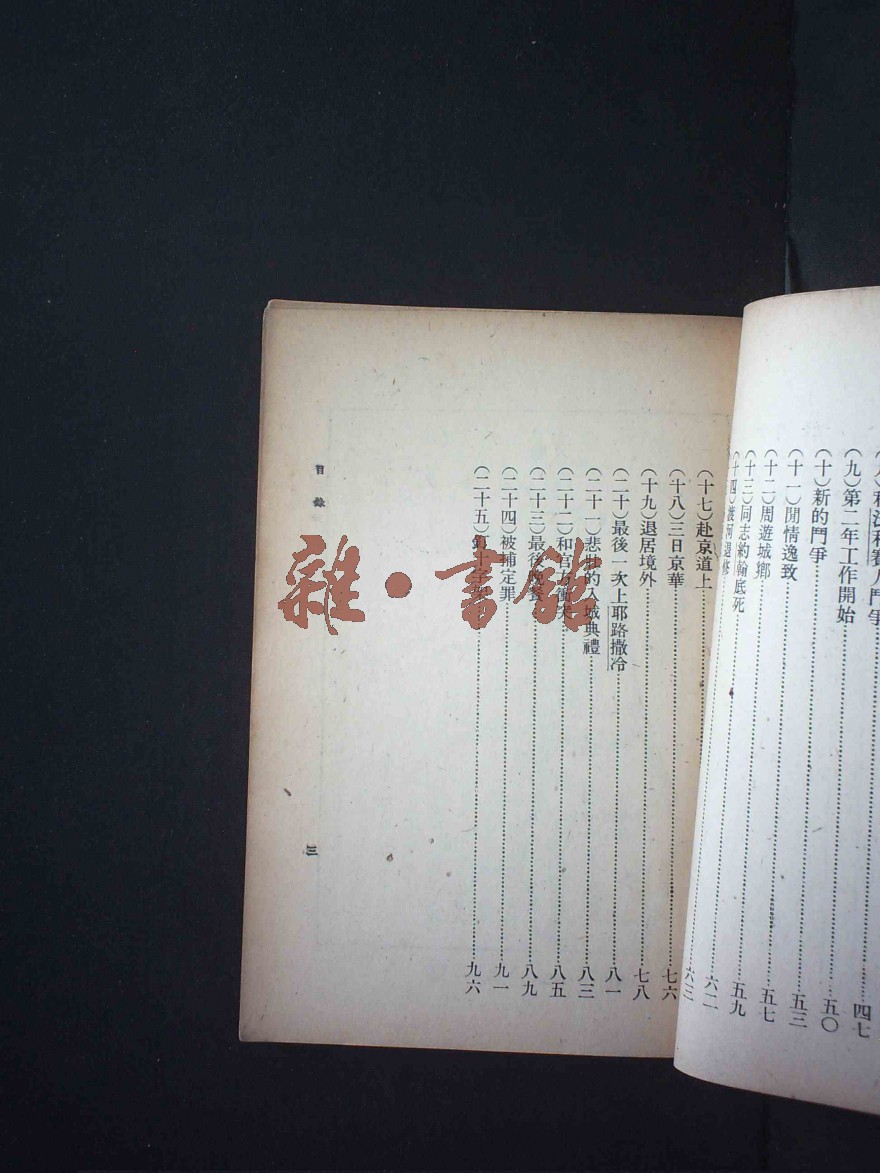 (九)第二年工作開始……四七
(十)新的鬥爭……五〇
(十一)閒情逸致……五三
(十二)周遊城鄉……五七
(十三)同志約翰底死……五九
(十四)退修……六二
(十七)赴京道上……
(十八)三日京華……七六
(十九)退居境外……七八
(二十)最後一次上耶路撒冷……八一
(二十一)悲壯的入城典禮……八三
(二十二)和官方衝突……八五
(二十三)最後晚餐……八九
(二十四)被捕定罪……九一
(二十五)釘十字架……九六
目錄
三
雜·書館